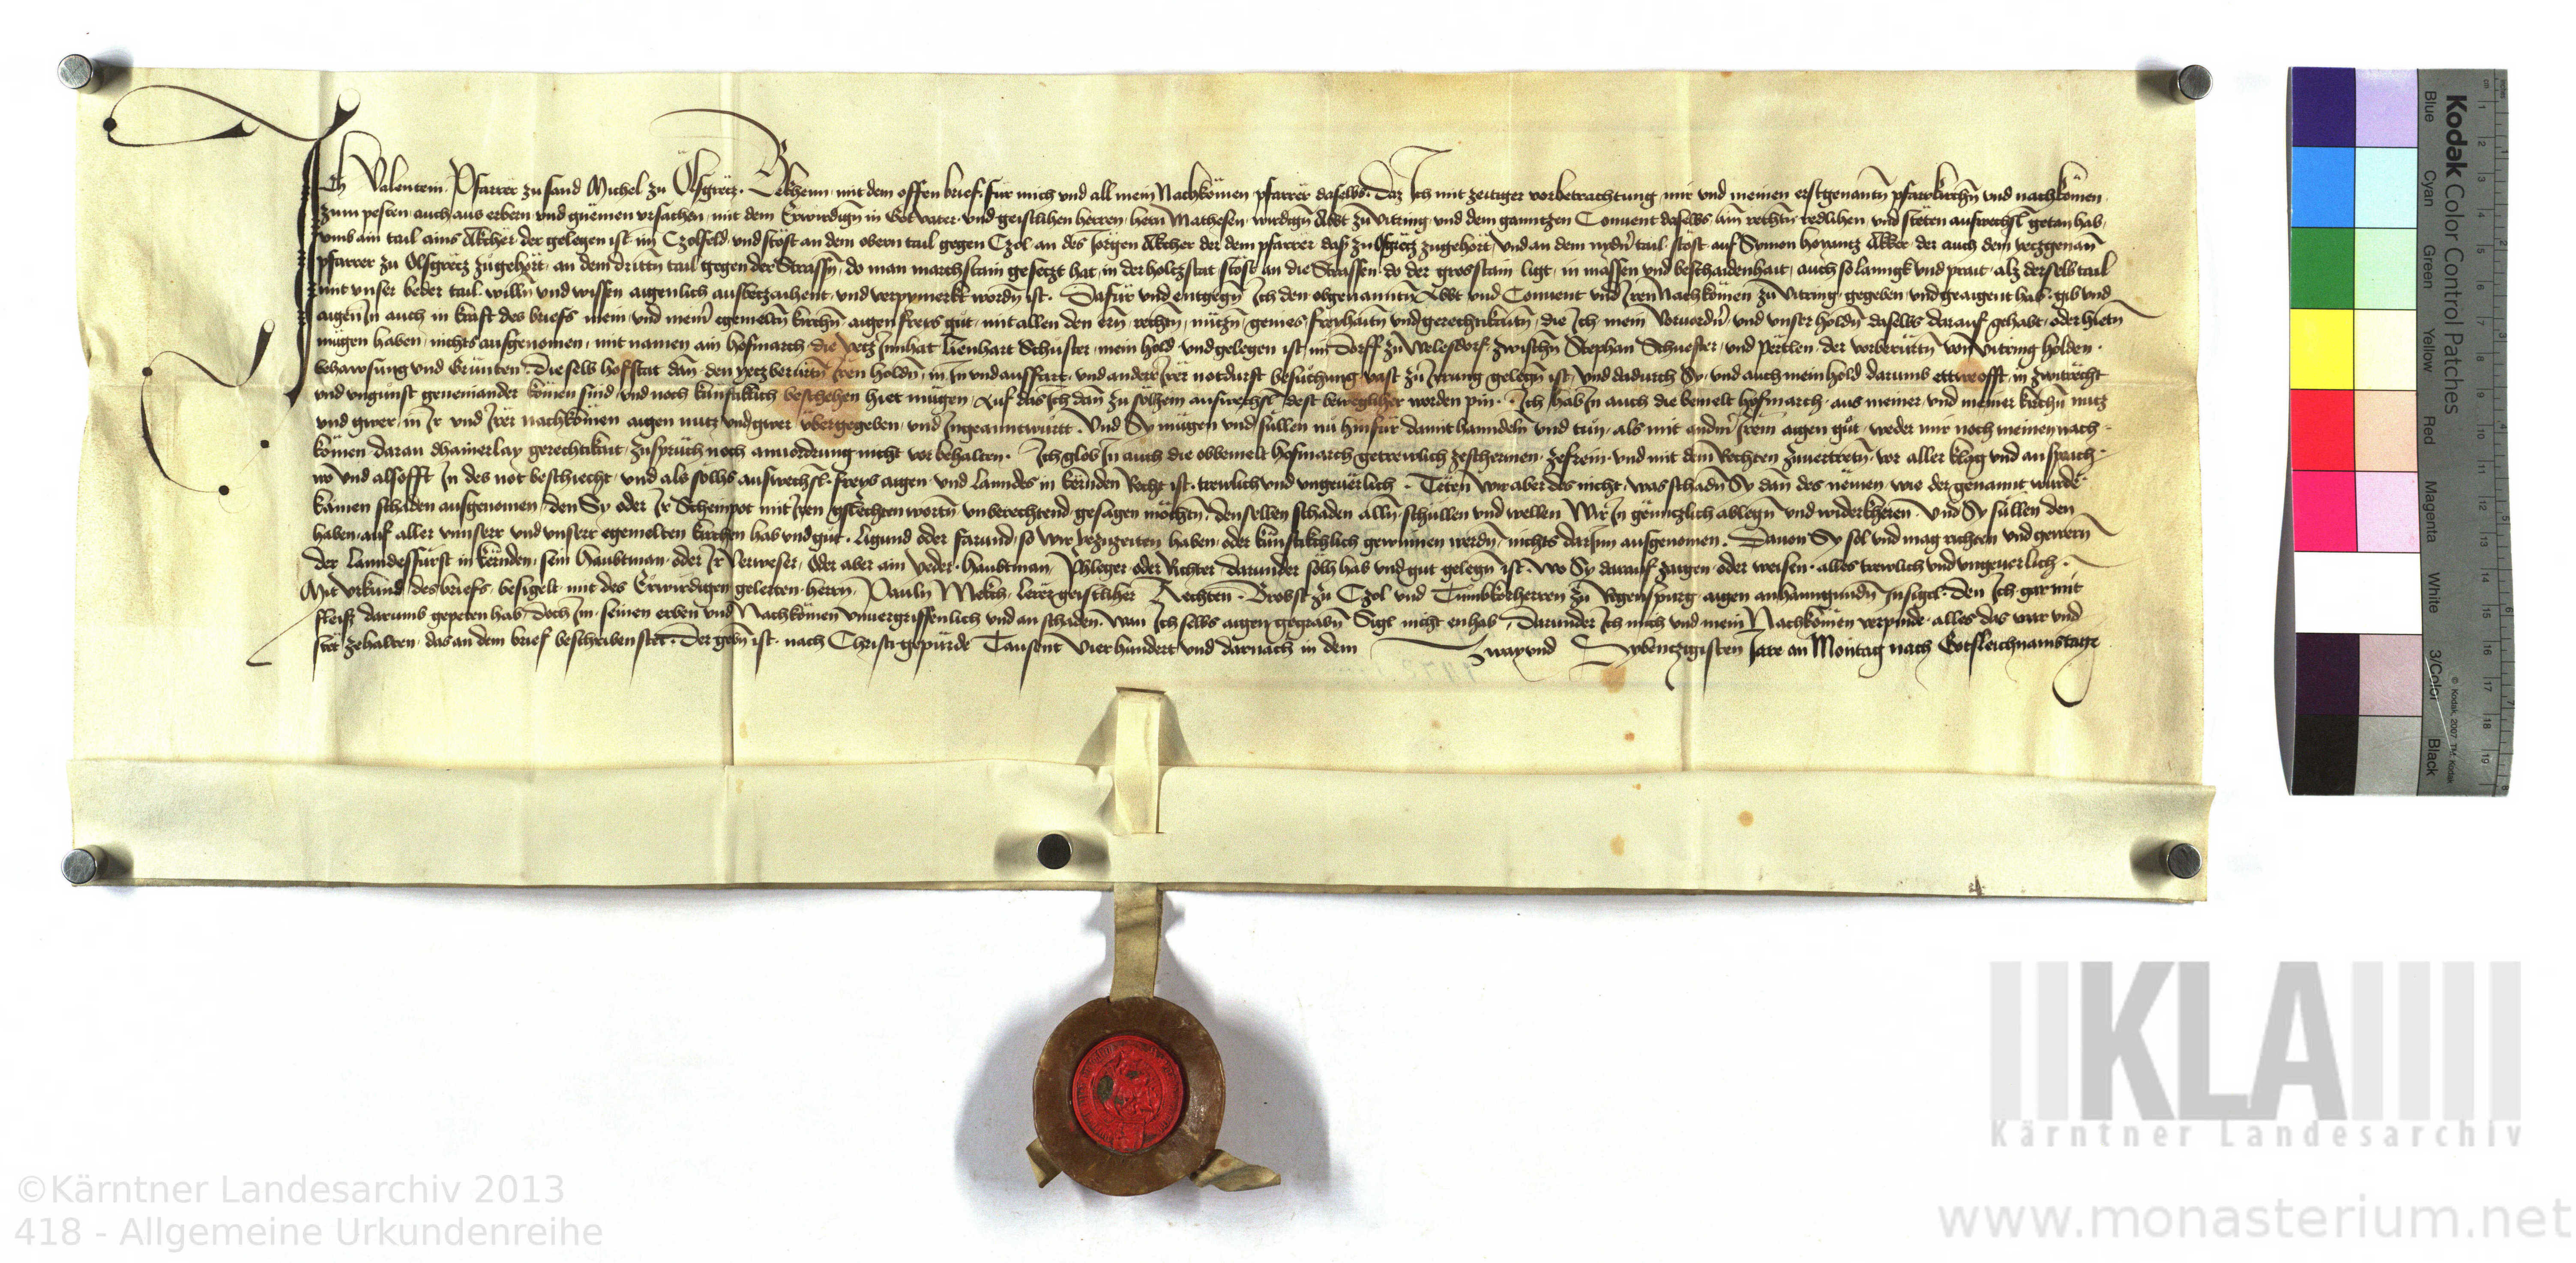 Ich Valentein Pfarrer zu sand Michel zu Olsgretz. Bekhenn mit dem offen brief, für mich und all mein Nachkömen pfarrer daselbs. Daz Ich mit zeitiger vorbetrachtung mir und meinen erstgenantn pfarrkirchn und nachkömen
zum pesten auch aus erbern und gueten ursachen mit dem Erwirdign in Got vater und geistlihen herren hern Mathesen wirdign Abbt zu Vitring und dem ganntzen Convent daselbs ain rechtn redlihen und stëten aufwechsl getan hab
umb ain tail ains Akcher der gelegen ist im Czolfeld und stöst an dem obern tail gegen Czol an des Jorgen Akcher der dem pfarrer das zu Olsgretz zugehört und an dem nydn tail stöst auf Symon Akker der auch dem yeczgenan
pfarrer zu Olsgretz zugehört an dem drittn tail gegen der Strassn do man marchstain gesetzt hat in der holtzstat stöst an die Strassen do der grosstain ligt in massen und beschaidenhait auch so lanngk und prait alz derselb tail
mit unser beder tail willn und wissen aigenlich ausbeczaihent und verpymerkt wordn ist. Dafür und entgegn Ich den obgenanntn Abbt und Convent und Iren Nachkömen zu Vitring gegeben und geaigent hab gib und
aigen In auch in kraft des briefs mein und meinr egemeltn kirchn aigen freys gut mit allen den ern rechtn nützn genies freyhaitn und gerechtikaitn die Ich mein Vorvordn und unser holdn daselbs darauf gehabt oder hietn
mügen haben nichts ausgenomen mit namen ain hofmarch die yetz Innhat Lienhart Schuster mein hold und gelegen ist im Dorff zu Welesdorf zwischn Stephan Schuester und Pertlen der vorberürtn von Vitring holden
behawsung und Grünten. Dieselb hofstat dan den yetzberürtn Iren holdn in In und ausfart und anderr Irer notdurft besuechung vast zu Irrung gelegn ist und dadurch Sy und auch mein hold darumb ettweofft in zwitrëcht
und ungunst geneinander kömen sind und noch künftiklich beschehen hiet mügen Auf das Ich dan zu solhem aufwechsl dest beweglicher worden pin. Ich hab In auch die bemelt hofmarch aus meiner und meiner kirchn nutz
und gwer in Ir und Irer nachkömen aigen nutz und gwer übergegeben und Ingeanntwurtt. Und Sy mügen und süllen nu hinfür damit hanndeln und tun als mit andrm Irem aigen gut weder mir noch meinen nach
kömen daran dhainerlay gerechtikait zuspruch noch anvordrung nicht vorbehalten. Ich glob In auch die obbemelt hofmarch getrewlich zeschermen zefrein und mit dem Rechten zuvertretn vor aller klag und ansprach
wo und alsofft In des not beschiecht und als solhs aufwechsl freys aigen und Lanndes in kernden Recht ist trewlich und ungeverlich. Teten wir aber des nicht was schadn Sy dan des nëmen wie der genannt wurde
kainen schaden ausgenomen den Sy oder Ir Scheinpot mit Iren slechten wortn unberechtend gesagen möchtn denselben schaden alln schullen und wellen Wir In gënntzlich ablegn und widerkheren. Und Sy süllen den
haben auf aller unnser und unserr egemelten kirchen hab und gut ligund oder farund so wir yezuzeiten haben oder künftikchlich gewinnen werdn nichts darinn ausgenomen. Davon Sy sol und mag richten und gewern
der Lanndesfürst in kërnden sein haubtman oder Ir Verweser oder aber ain yeder haubtman Phleger oder Richter darunder solh hab und gut gelegn ist wo Sy darauf zaigen oder weisen alles trewlich und ungeverlich.
Mit urkund des briefs besigelt mit des Erwirdigen gelerten herrn Pauln lerer geistliher Rechten Brobst zu Czol und Tumbkorherren zu Regenspurg aigen anhanngundn Insigel. Den Ich gar mit
fleiss darumb gepeten hab doch Im seinen erben und Nachkömen unvergriffenlich und an schaden wan Ich selbs aigen gegrabn Sigl nicht enhab darunder Ich mich und mein Nachkömen verpinde alles das war und
stet zehalten das an dem brief beschriben stet. Der gebn ist nach Christi gepürde Tausent Vierhundert und darnach in dem Zway und Sybenczigisten Jare an Montag nach Gotsleichnamstage
Kodak Color Control Patches
© Kodak, 2007 TM: Kodak
Blue Cyan Green Yellow Red Magenta White 3/Color Black
KLA
Kärntner Landesarchiv
www.monasterium.net
©Kärntner Landesarchiv 2013
418 - Allgemeine Urkundenreihe